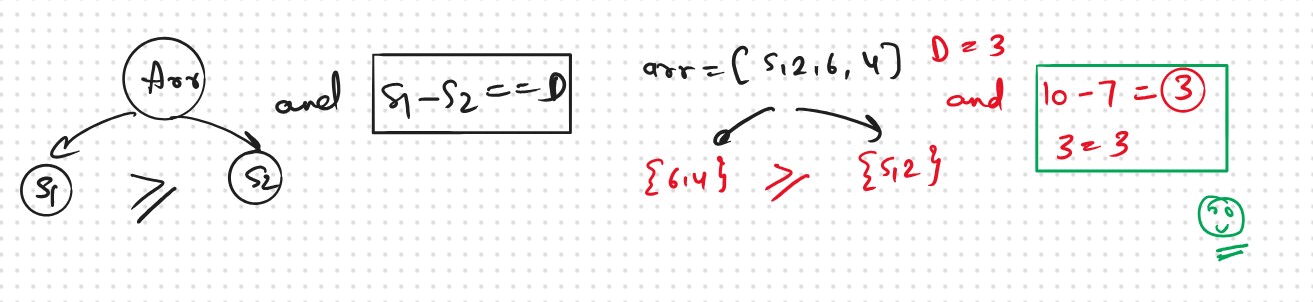 Arr
S1
≥
S2
and
S1-S2 == D
arr = [5,2,6,4]
D = 3
and
{6,4}
≥
{5,2}
10 - 7 = 3
3 = 3